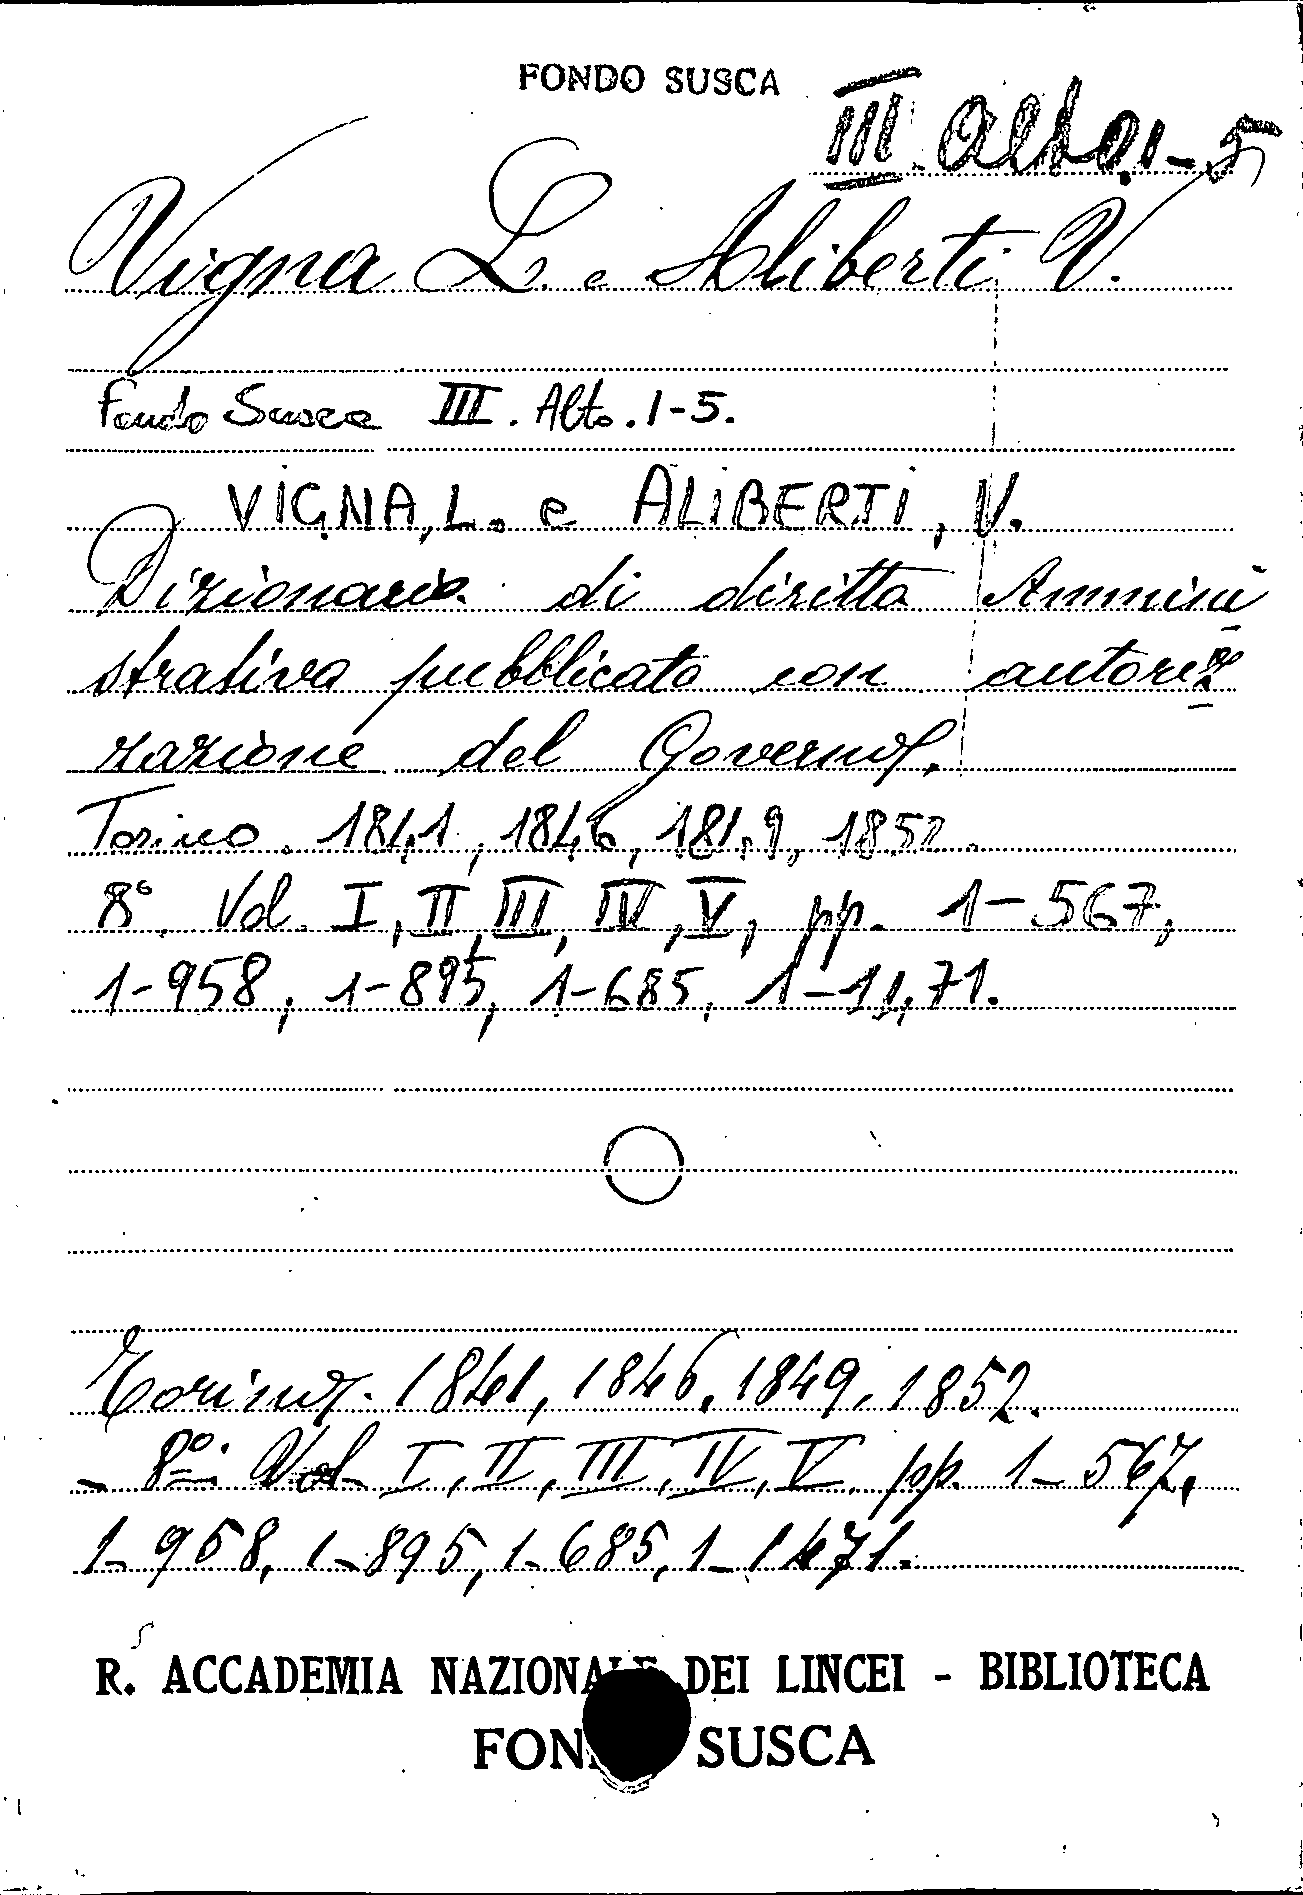 FONDO SUSCA
III. Alto. 1-5
Vigna L. e Aliberti V.
Fondo Susca III. Alto. 1-5.
VIGNA, L. e ALIBERTI, V.
Dizionario di diritto Ammini
strativo pubblicato con autoriz
zazione del Governo.
Torino. 1841, 1846, 1849, 1852.
8°. Vol. I, II, III, IV, V, pp. 1-567,
1-958, 1-895, 1-685, 1-1471.
Torino. 1841, 1846, 1849, 1852.
- 8º. Vol. I, II, III, IV, V. pp. 1-567,
1-958, 1-895, 1-685, 1-1471.
R. ACCADEMIA NAZIONALE DEI LINCEI - BIBLIOTECA
FONDO SUSCA